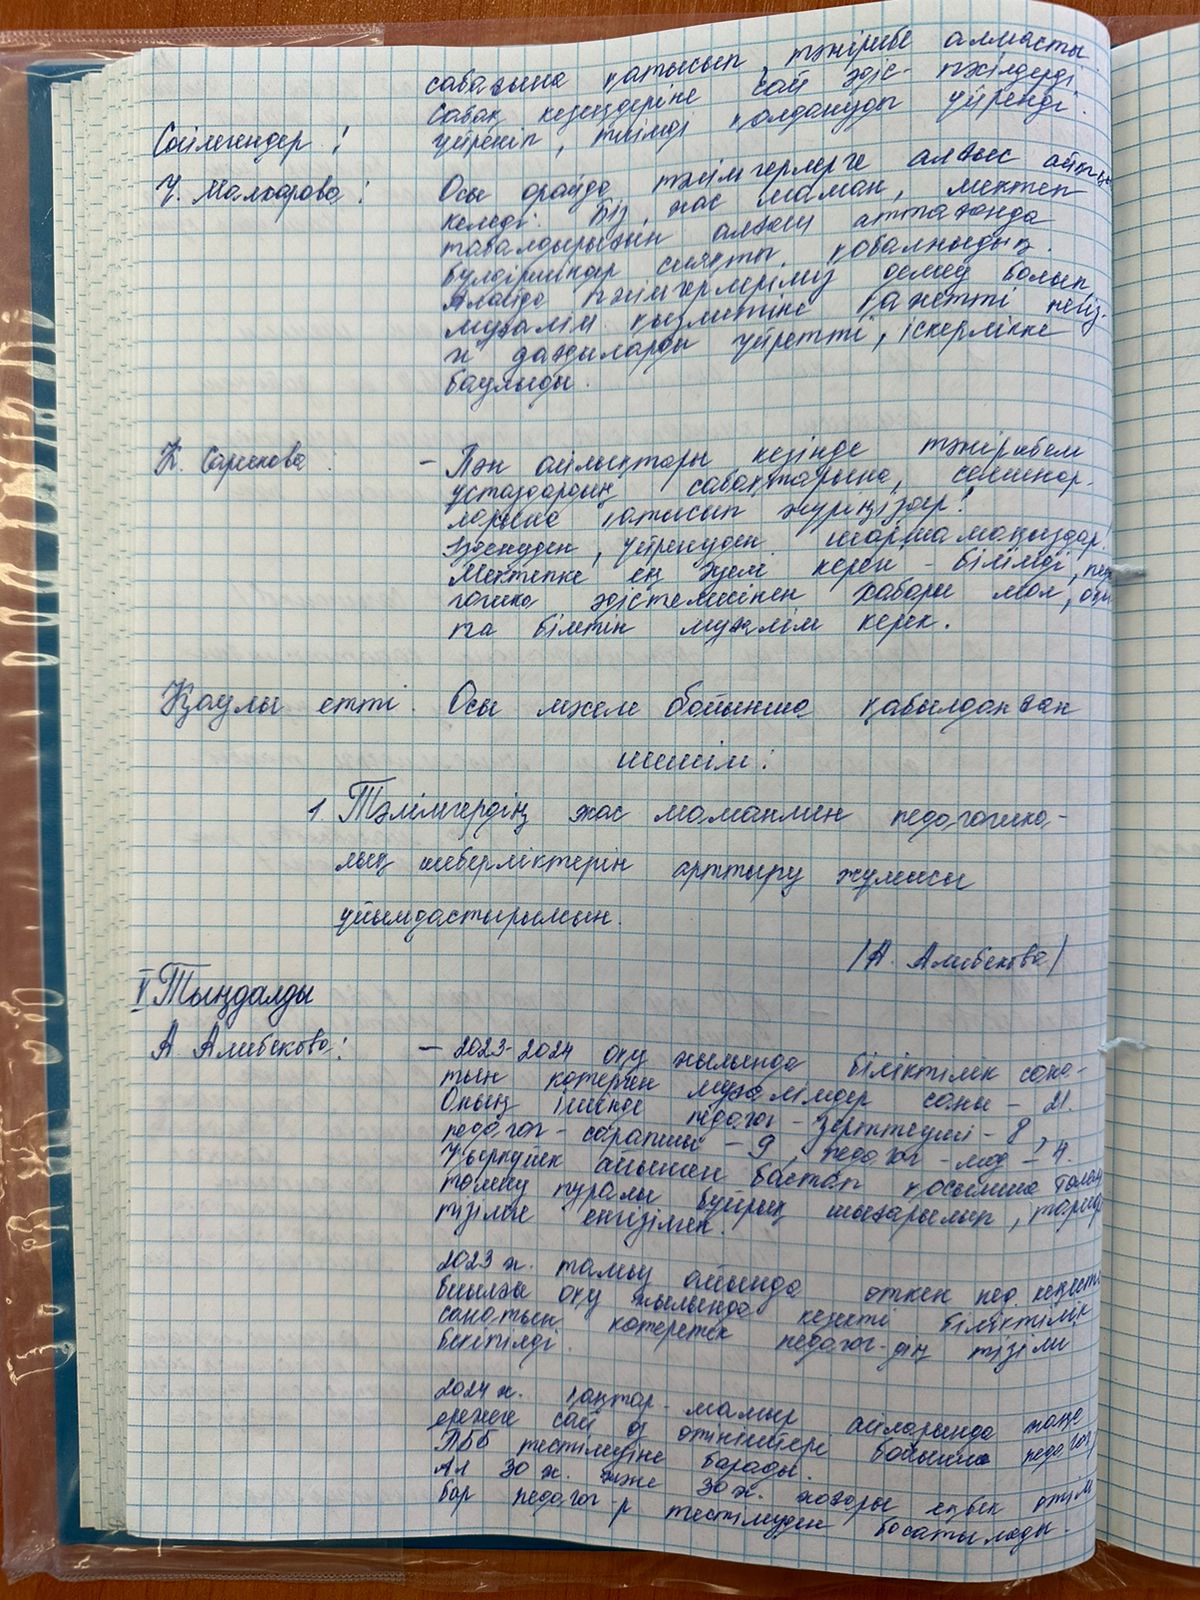 сабағына қатысып, тәжірибе алмасты.
Сабақ кезеңдеріне сай әдіс-тәсілдерді
үйреніп, тиімді қолдануды үйренді.
Сөйлегендер:
Ц. Малкарова: Осы орайда тәлімгерлерге алғыс айтқым
келеді. Біз, жас маман, мектеп
табалдырығын алғаш аттағанда
бүлдіршіндер сияқты қобалжыдық.
Алайда тәлімгерлеріміз демеу болып,
мұғалім қызметіне қажетті негіз-
гі дағдыларды үйретті, іскерлікке
баулыды.
К. Сарекова. – Пән айлықтары кезінде тәжірибелі
ұстаздардың сабақтарына, семинар-
ларына қатысып жүріңіздер!
Ізденуден, үйренуден шаршамаңыздар!
Мектепке ең әуелі керегі – білімді, педа
гогика әдістемесінен хабары мол, оқы
та білетін мұғалім керек.
Қаулы етті. Осы мәселе бойынша қабылданған
шешім:
1. Тәлімгердің жас маманмен педагогика-
лық шеберліктерін арттыру жұмысы
ұйымдастырылсын.
/А. Алибекова/
V Тыңдалды
А Алибекова: – 2023-2024 оқу жылында біліктілік сана-
тын көтерген мұғалімдер саны – 21.
Оның ішінде педагог-зерттеуші – 8,
педагог-сарапшы – 9, педагог-мод – 4.
Қыркүйек айынан бастап қосымша төлем
төлеу туралы бұйрық шығарылып, тариф
тізіміне енгізілген.
2023 ж. тамыз айында өткен пед. кеңесте
биылғы оқу жылында кезекті біліктілік
санатын көтеретін педагог-дің тізімі
бекітілді.
2024 ж. қаңтар-мамыр айларында жаңа
ережеге сай өз өтініштері бойынша педагог
ПББ тестілеуіне барады.
Ал 30 ж. және 30 ж. жоғары еңбек өтілі
бар педагог-р тестілеуден босатылады.